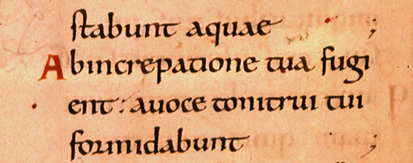 stabunt aquae ;
Abincrepatione tua fugi
ent : avoce tonitrui tui
formidabunt ;